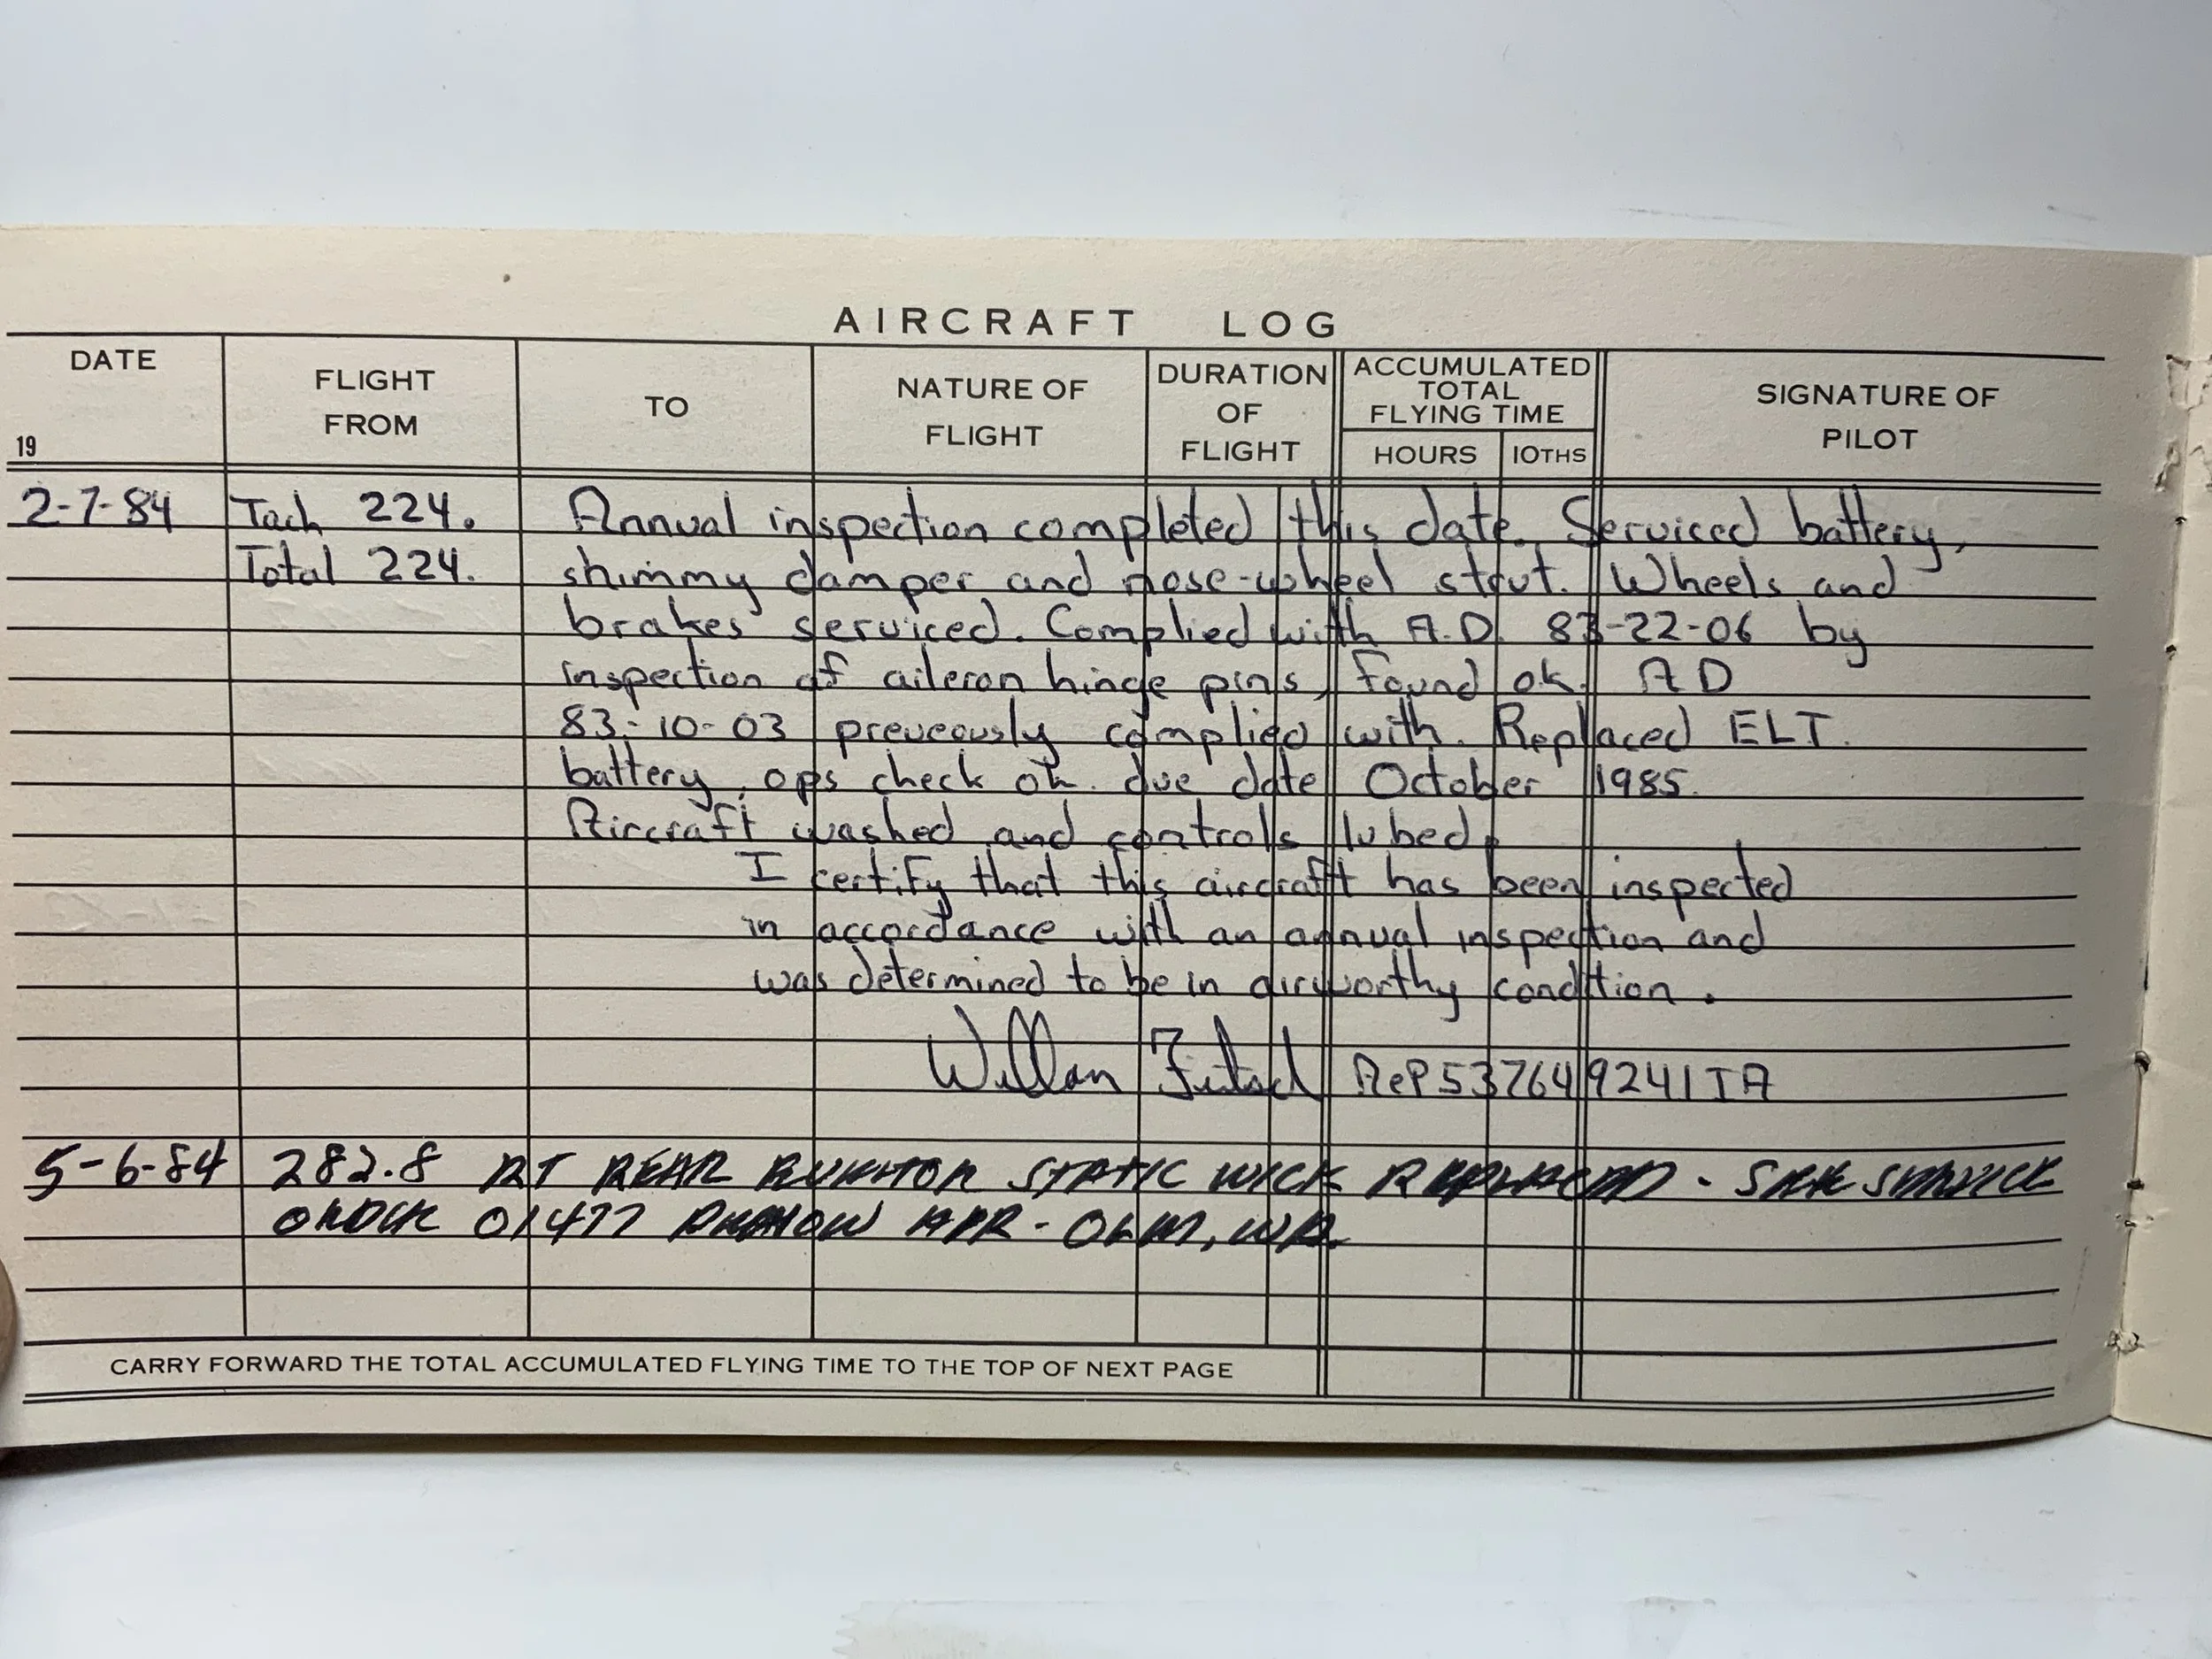 AIRCRAFT LOG
DATE
19
FLIGHT
FROM
TO
NATURE OF
FLIGHT
DURATION
OF
FLIGHT
ACCUMULATED
TOTAL
FLYING TIME
HOURS 10THS
SIGNATURE OF
PILOT
2-7-84 Tach 224. Annual inspection completed this date. Serviced battery,
Total 224. shimmy damper and nose-wheel strut. Wheels and
brakes serviced. Complied with A.D. 83-22-06 by
inspection of aileron hinge pins, found ok. AD
83-10-03 preveously complied with. Replaced ELT.
battery, ops check ok. due date October 1985.
Aircraft washed and controls lubed.
I certify that this aircraft has been inspected
in accordance with an annual inspection and
was determined to be in airworthy condition.
A&P 537649241 IA
5-6-84 282.8 RT REAR STATIC WICK REPLACED - SEE SERVICE
ORDER 01477 - OLM, WA.
CARRY FORWARD THE TOTAL ACCUMULATED FLYING TIME TO THE TOP OF NEXT PAGE